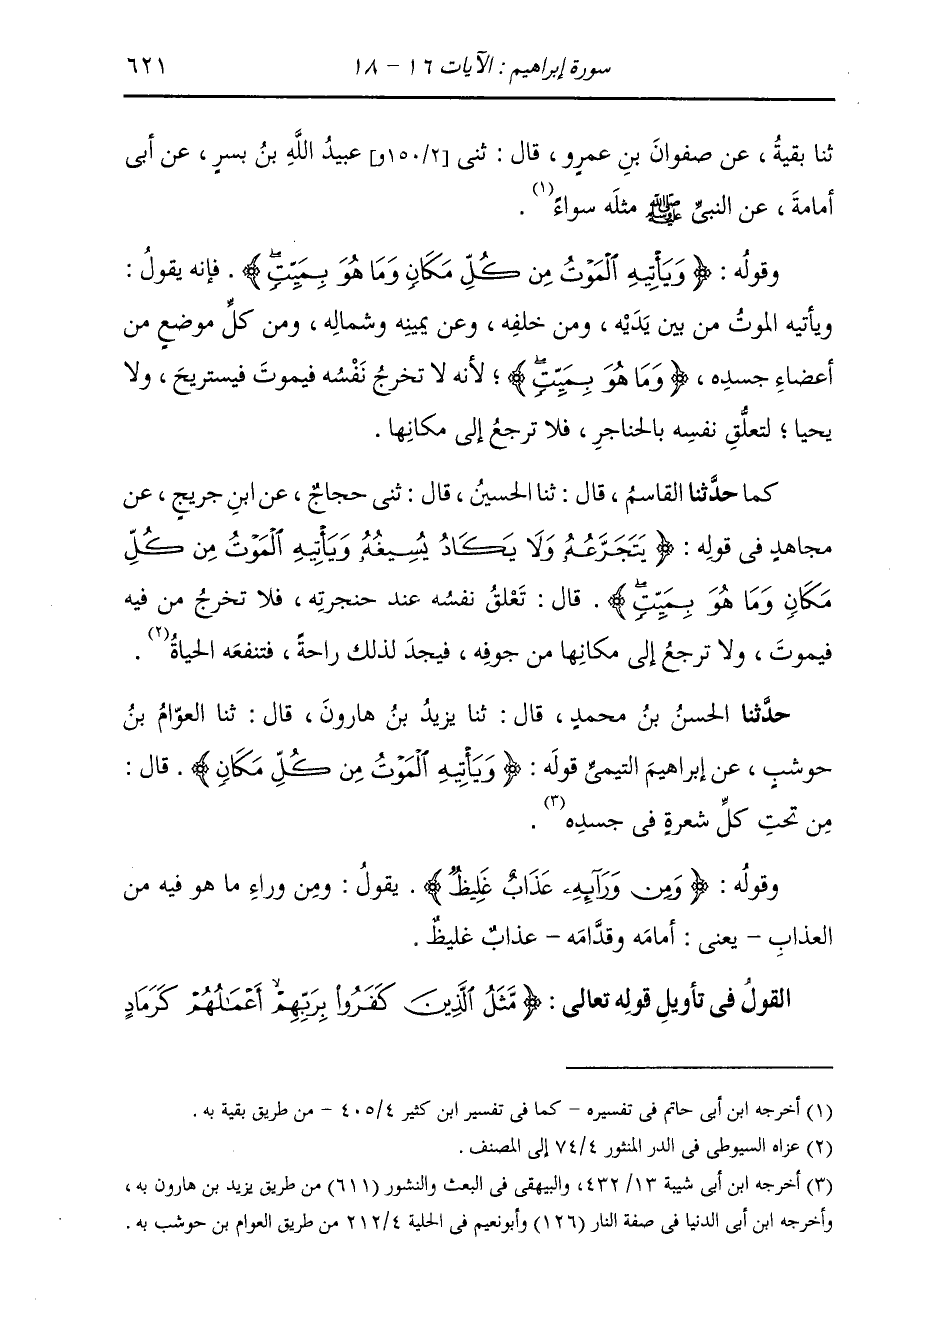 سورة إبراهيم : الآيات ١٦ - ١٨ ٦٢١
ثنا بقيةُ ، عن صفوانَ بنِ عمرٍو ، قال : ثنى [١٥٠/٢و] عبيدُ اللَّهِ بنُ بسرٍ ، عن أبى
أمامةَ ، عن النبىِّ ﷺ مثلَه سواءً(١) .
وقولُه : ﴿ وَيَأْتِيهِ ٱلْمَوْتُ مِن كُلِّ مَكَانٍ وَمَا هُوَ بِمَيِّتٍۖ ﴾ . فإنه يقولُ :
ويأتيه الموتُ من بين يَدَيْه ، ومن خلفِه ، وعن يمينِه وشمالِه ، ومن كلِّ موضعٍ من
أعضاءِ جسدِه ، ﴿ وَمَا هُوَ بِمَيِّتٍۖ ﴾ ؛ لأنه لا تخرجُ نَفْسُه فيموتَ فيستريحَ ، ولا
يحيا ؛ لتعلُّقِ نفسِه بالحناجرِ ، فلا ترجعُ إلى مكانِها .
كما حدَّثنا القاسمُ ، قال : ثنا الحسينُ ، قال : ثنى حجاجٌ ، عن ابنِ جريجٍ ، عن
مجاهدٍ فى قولِه : ﴿ يَتَجَرَّعُهُۥ وَلَا يَكَادُ يُسِيغُهُۥ وَيَأْتِيهِ ٱلْمَوْتُ مِن كُلِّ
مَكَانٍ وَمَا هُوَ بِمَيِّتٍۖ ﴾ . قال : تَعْلقُ نفسُه عند حنجرتِه ، فلا تخرجُ من فيه
فيموتَ ، ولا ترجعُ إلى مكانِها من جوفِه ، فيجدَ لذلك راحةً ، فتنفعَه الحياةُ(٢) .
حدَّثنا الحسنُ بنُ محمدٍ ، قال : ثنا يزيدُ بنُ هارونَ ، قال : ثنا العوّامُ بنُ
حوشبٍ ، عن إبراهيمَ التيمىِّ قولَه : ﴿ وَيَأْتِيهِ ٱلْمَوْتُ مِن كُلِّ مَكَانٍ ﴾ . قال :
مِن تحتِ كلِّ شعرةٍ فى جسدِه(٣) .
وقولُه : ﴿ وَمِن وَرَآئِهِۦ عَذَابٌ غَلِيظٌ ﴾ . يقولُ : ومِن وراءِ ما هو فيه من
العذابِ - يعنى : أمامَه وقدَّامَه - عذابٌ غليظٌ .
القولُ فى تأويلِ قولِه تعالى : ﴿ مَّثَلُ ٱلَّذِينَ كَفَرُواْ بِرَبِّهِمْۖ أَعْمَٰلُهُمْ كَرَمَادٍ
(١) أخرجه ابن أبى حاتم فى تفسيره - كما فى تفسير ابن كثير ٤٠٥/٤ - من طريق بقية به .
(٢) عزاه السيوطى فى الدر المنثور ٧٤/٤ إلى المصنف .
(٣) أخرجه ابن أبى شيبة ١٣/ ٤٣٢، والبيهقى فى البعث والنشور (٦١١) من طريق يزيد بن هارون به ،
وأخرجه ابن أبى الدنيا فى صفة النار (١٢٦) وأبونعيم فى الحلية ٢١٢/٤ من طريق العوام بن حوشب به .